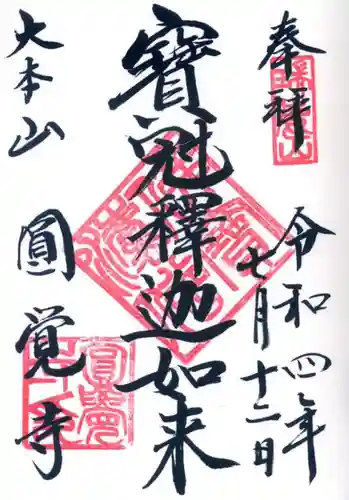 奉拝
令和四年
七月十二日
寳冠釋迦如来
大本山
圓覚寺